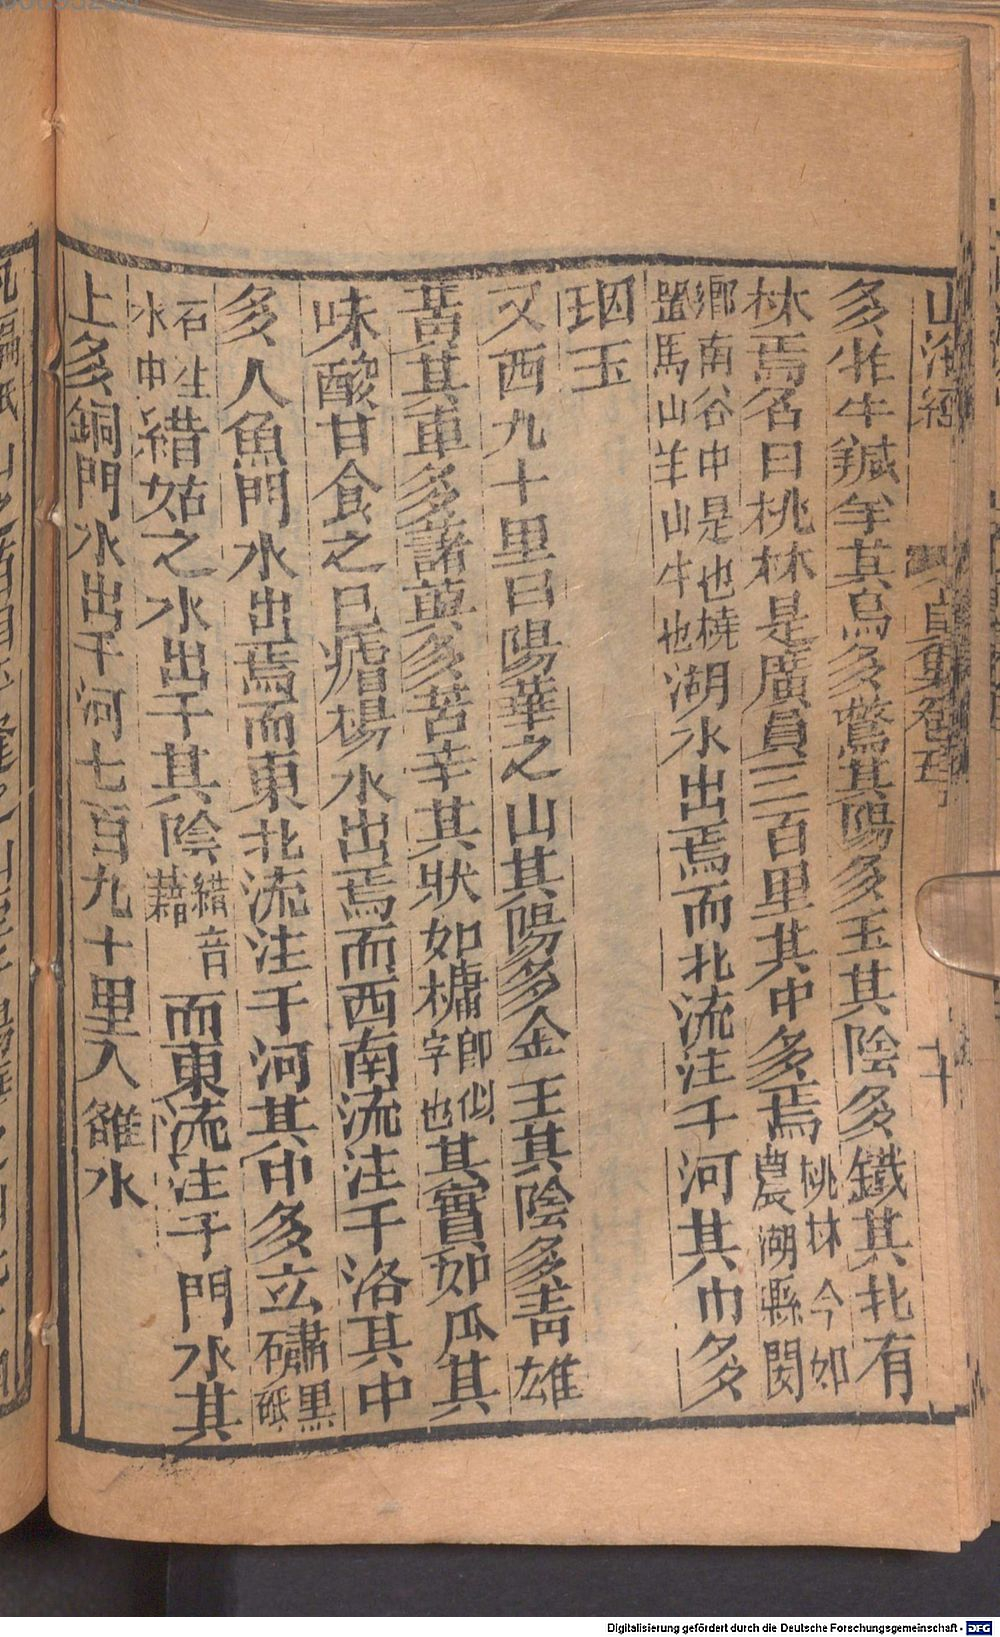 山海經
多㸲牛羬羊其鳥多鷩其陽多玉其陰多鐵其北有
林焉名曰桃林是廣員三百里其中多焉桃林今如農湖縣閿
鄉南谷中是也橈豎馬山羊山牛也湖水出焉而北流注于河其巾多
珚玉
又西九十里曰陽華之山其陽多金王其陰多青雄
黃其車多藷藇多苦辛其狀如橚即似字也其實如瓜其
味酸甘食之已瘧楊水出焉而西南流注于洛其中
多人魚門水出焉而東北流注于河其中多玄䃤黑砥
石生水中緒姑之水出于其陰緒音藉而東流注于門水其
上多銅門水出于河七百九十里入雒水
Digitalisierung gefördert durch die Deutsche Forschungsgemeinschaft - DFG